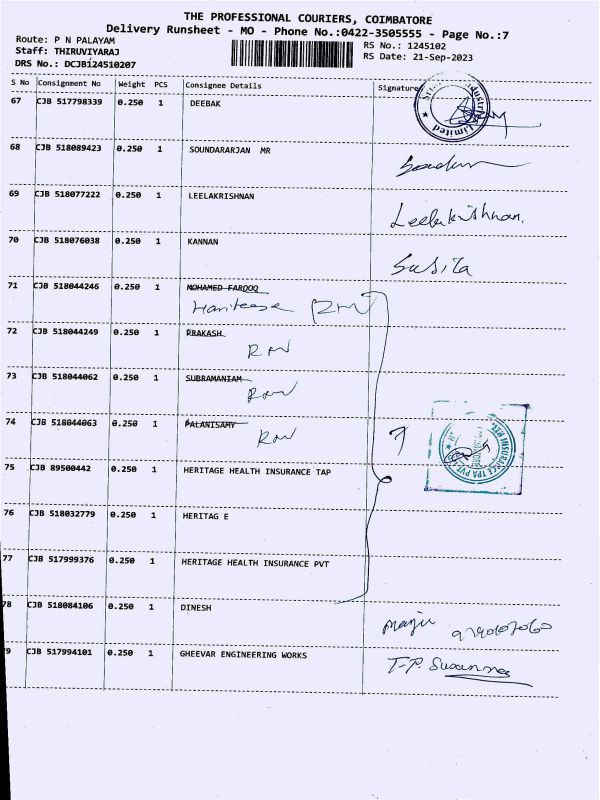 THE PROFESSIONAL COURIERS, COIMBATORE
Delivery Runsheet - MO - Phone No.:0422-3505555 - Page No.:7
Route: P N PALAYAM
RS No.: 1245102
Staff: THIRUVIYARAJ
RS Date: 21-Sep-2023
DRS No.: DCJB124510207
S No Consignment No Weight PCS Consignee Details Signature
67 CJB 517798339 0.250 1 DEEBAK
Limited
68 CJB 518089423 0.250 1 SOUNDARARJAN MR
69 CJB 518077222 0.250 1 LEELAKRISHNAN
Leelakrishnan.
70 CJB 518076038 0.250 1 KANNAN
Susila
71 CJB 518044246 0.250 1 MOHAMED FAROOQ
72 CJB 518044249 0.250 1 PRAKASH
73 CJB 518044062 0.250 1 SUBRAMANIAM
74 CJB 518044063 0.250 1 PALANISAMY
7
INSURANCE TPA PVT
75 CJB 89500442 0.250 1 HERITAGE HEALTH INSURANCE TAP
76 CJB 518032779 0.250 1 HERITAG E
77 CJB 517999376 0.250 1 HERITAGE HEALTH INSURANCE PVT
78 CJB 518084106 0.250 1 DINESH
79 CJB 517994101 0.250 1 GHEEVAR ENGINEERING WORKS